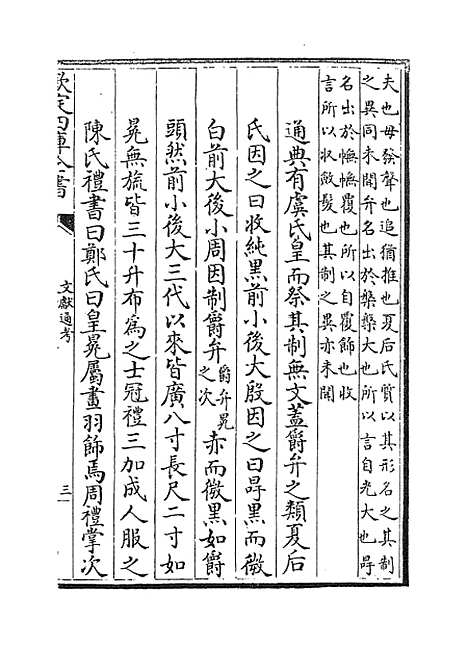 夫也毋發聲也追猶推也夏后氏質以其形名之其制
之異同未聞弁名出於槃槃大也所以言自光大也冔
名出於幠幠覆也所以自覆飾也收
言所以收斂髮也其制之異亦未聞
通典有虞氏皇而祭其制無文蓋爵弁之類夏后
氏因之曰收純黑前小後大殷因之曰冔黑而微
白前大後小周因制爵弁爵弁冕之次赤而微黑如爵
頭然前小後大三代以來皆廣八寸長尺二寸如
冕無旒皆三十升布為之士冠禮三加成人服之
陳氏禮書曰鄭氏曰皇冕屬畫羽飾焉周禮掌次
欽定四庫全書
文獻通考
三